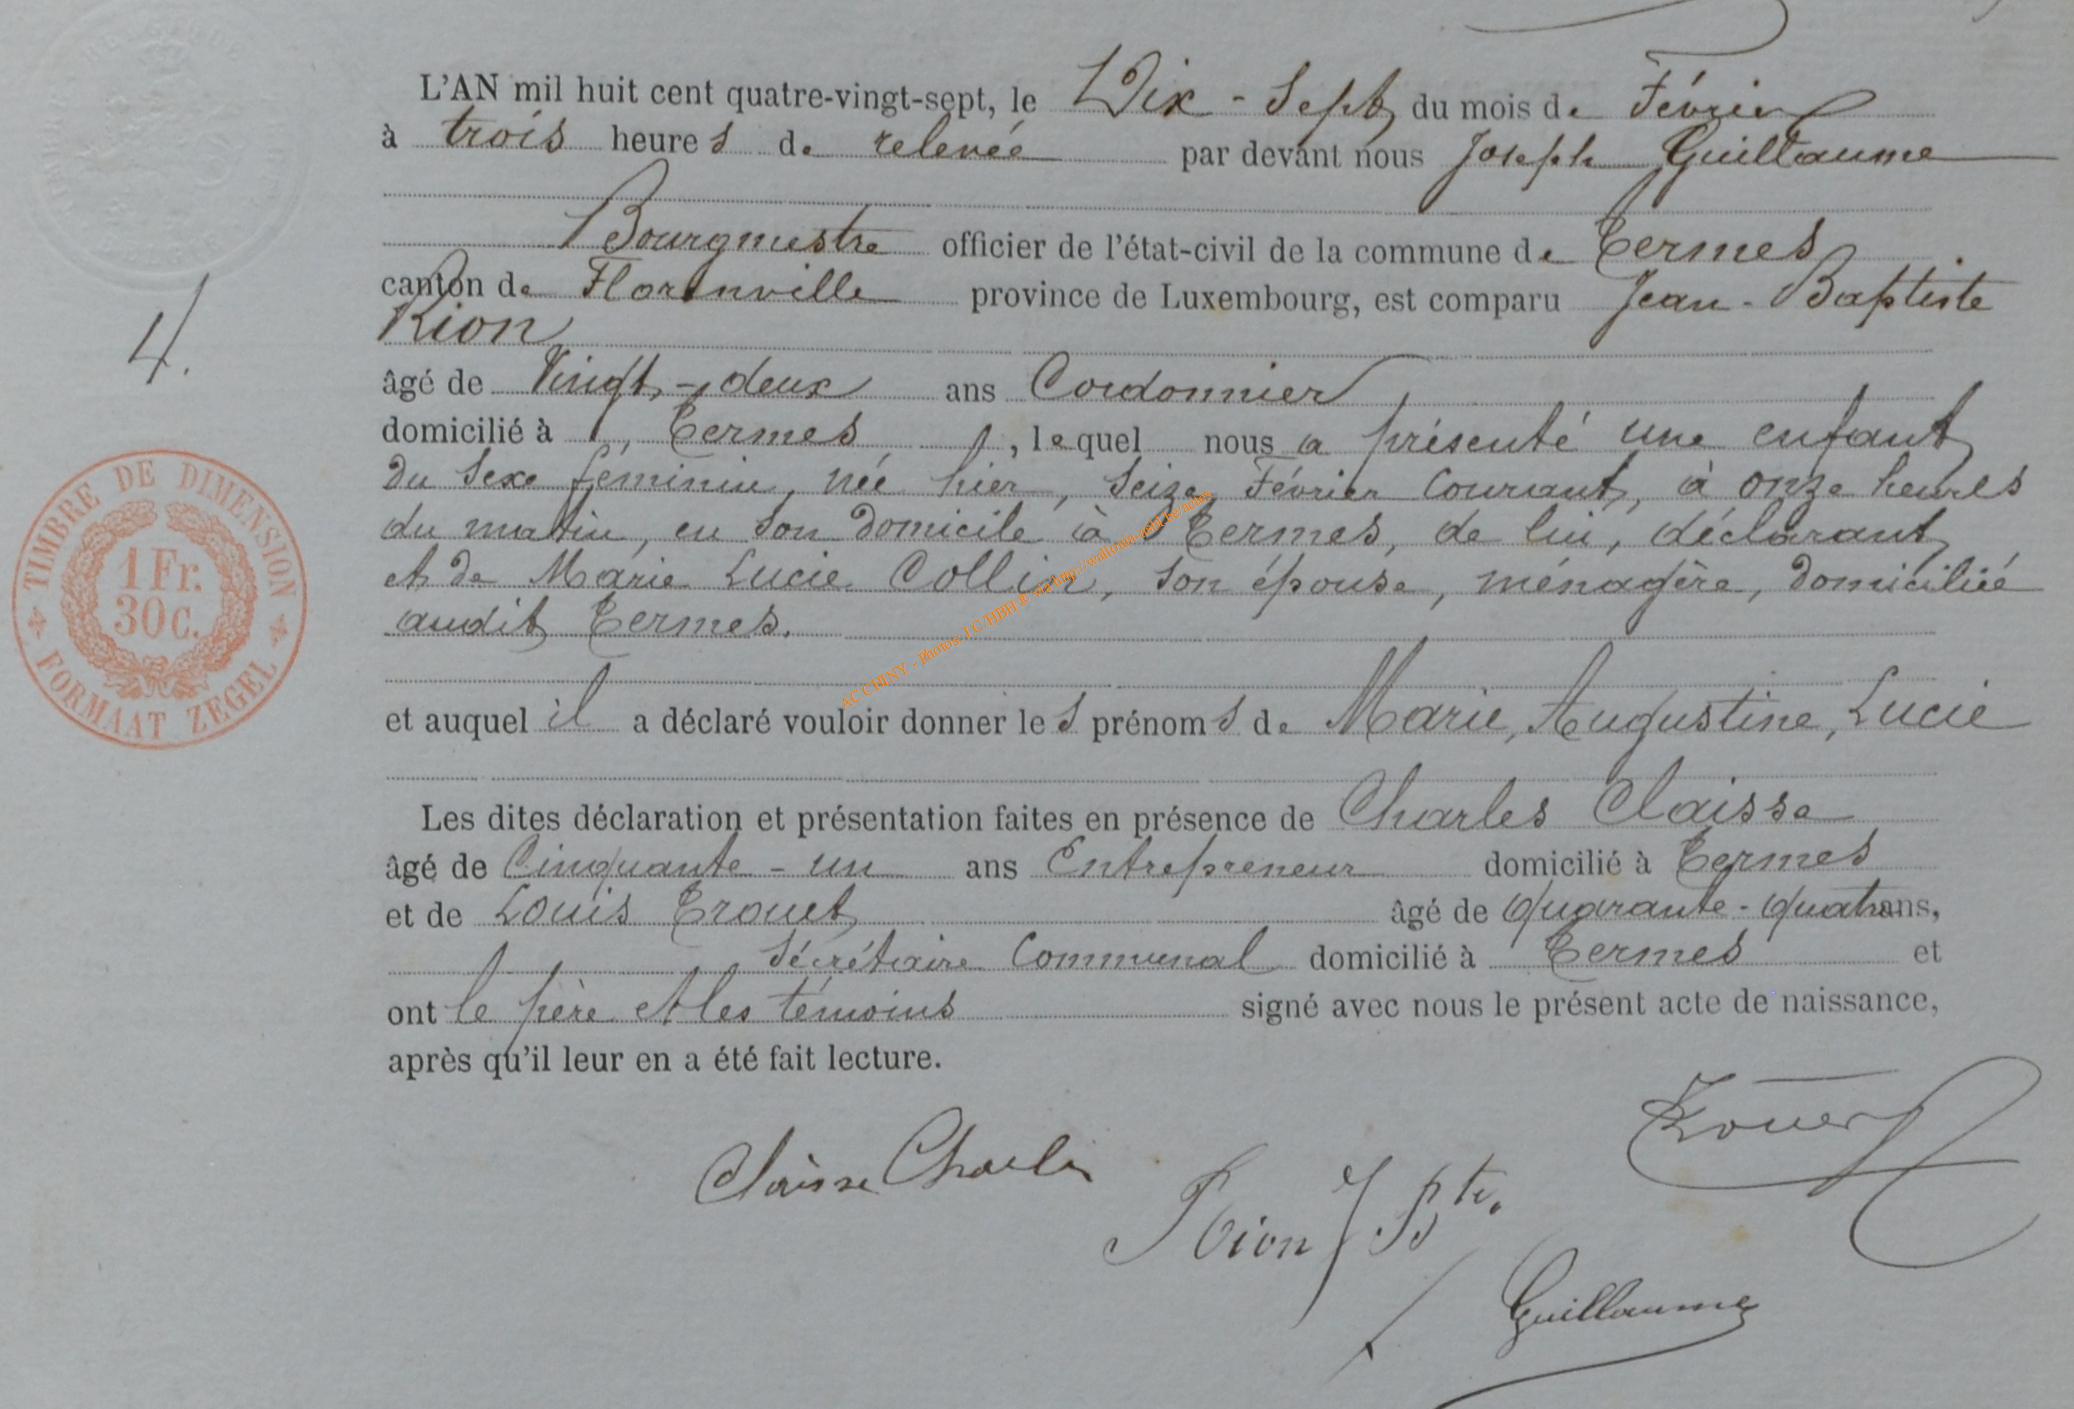 L'AN mil huit cent quatre-vingt-sept, le Dix-Sept du mois de Février
à trois heures de relevée par devant nous Joseph Guillaume
Bourgmestre officier de l'état-civil de la commune de Termes
canton de Florenville province de Luxembourg, est comparu Jean-Baptiste
Rion
4.
âgé de Vingt-deux ans Cordonnier
domicilié à Termes, lequel nous a présenté une enfant
du sexe féminin, née hier, Seize Février Courant, à onze heures
du matin, en son domicile à Termes, de lui, déclarant
et de Marie Lucie Collin, son épouse, ménagère, domiciliée
audit Termes.
TIMBRE DE DIMENSION
1 Fr.
30 c.
FORMAAT ZEGEL
et auquel il a déclaré vouloir donner les prénoms de Marie, Augustine, Lucie
Les dites déclaration et présentation faites en présence de Charles Claisse
âgé de Cinquante-un ans Entrepreneur domicilié à Termes
et de Louis Trouet âgé de Quarante-quatre ans,
Sécrétaire Communal domicilié à Termes et
ont le père et les témoins signé avec nous le présent acte de naissance,
après qu'il leur en a été fait lecture.
Trouet
Claisse Charles
Rion J Bte.
Guillaume